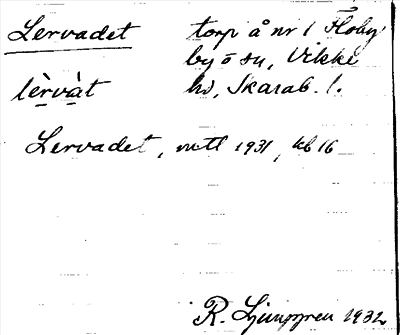 Lervadet torp å nr 1 Floby
by o sn, Vilske
lèrvàt hd, Skarab. l.
Lervadet, mtl 1931, kb 16
R. Ljunggren 1932